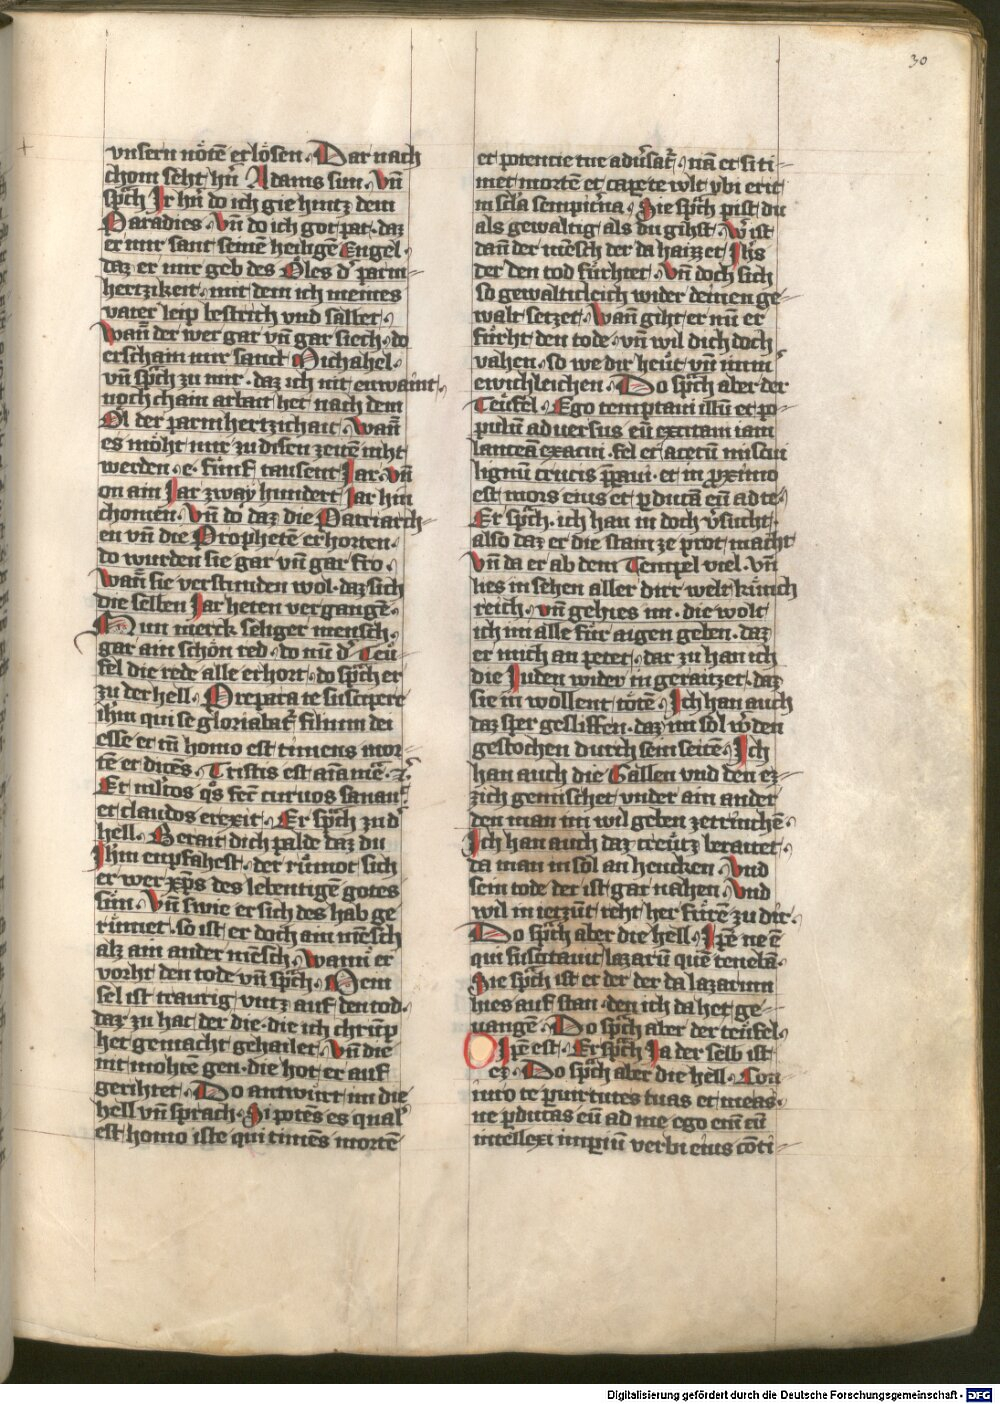 30
vnsern nöte᷑ erlösen. Dar nach
chom seht hn̄ Adams sun. Vn̄
spͣch Ir hn̄ do ich gie hintz dem
Paradies. Vn̄ do ich got pat. daz
er mir sant seine᷑ heilige᷑ Engel.
daz er mir geb des Öles d᷑ parm-
hertzikeit. mit dem ich meines
vater leip bestrich vnd salbet.
Wan̄ der wer gar vn̄ gar siech. do
erschain mir sanct Michahel.
vn̄ spͣch zu mir. daz ich nit enwaint.
noch chain arbait het nach dem
Öl der parmhertzichait. Wan̄
es möht mir zu disen zeite᷑ niht
werden. e. fümf tausent Jar. vn̄
on ain Jar zway hundert Jar hin
chomen. Vn̄ do daz die Patriarch-
en vn̄ die Prophete᷑ erhorten.
do wurden sie gar vn̄ gar fro.
Wan̄ sie verstunden wol. daz sich
die selben Jar heten vergange᷑.
Nun merck seliger mensch.
gar ain schön red. do nu᷑ d᷑ Teü-
fel die rede alle erhort. do spͣch er
zu der hell. Prepara te suscipere
ih̄m qui se gloriabat᷑ filium dei
esse et in̄ homo est timens mor-
te᷑ et dice᷑s. Tristis est ai᷑a mea. &c.
Et m̄ltos q̊s feci curuos sanauit
et claudos erexit. Er spͣch zu d᷑
hell. Berait dich palde daz du
Ih̄m enpfahest. der rümot sich
er wer xp̄s des lebentige᷑ gotes
sün. Vn̄ swie er sich des hab ge
rümet. so ist er doch ain me᷑sch
alz ain ander me᷑sch. Wann er
vorht den tode vn̄ spͣch. Mein
sel ist traurig vntz auf den tod.
dar zu hat der die. die ich chrüp
het gemacht gehailet. Vn̄ die
nit mohte᷑ gen. die hot er auf
gerihtet. Do antwürt im die
hell vn̄ sprach. Si pote᷑s es qual᷑
est homo iste qui time᷑s morte᷑
et potencie tue adu᷑sat᷑. nā et si ti-
met morte᷑ et capere te wlt vbi erit
in sc̄la sempit᷑na. Sie spͣch pist du
als gewaltig als du gihst. W᷑ ist
dan̄ der me᷑sch der da haizzet Ih̄s
der den tod fürhtet. Vn̄ doch sich
so gewaltichleich wider deinen ge-
walt setzet. Wan̄ giht er nu᷑ er
fürht den tode. vn̄ wil dich doch
vahen. so we dir heüt vn̄ imm᷑
ewichleichen. Do spͣch aber der
Teüfel. Ego temptaui illu᷑ et po-
pulu᷑ aduersus eu᷑ excitaui iam
lanceā exacui. fel et acetu᷑ miscui
lignu᷑ crucis p̄paui. et in ꝓximo
est mors eius et ꝑducā eu᷑ ad te.
Er spͣch. ich han in doch v᷑sucht.
also daz er die stain ze prot macht
Vn̄ da er ab dem Tempel viel. vn̄
lies in sehen aller dirr welt künich
reich. vn̄ gehies im. die wolt
ich im alle für aigen geben. daz
er mich an petet. dar zu han ich
die Juden wider in geraitzet. daz
sie in wollent töte᷑. Ich han auch
daz sper gesliffen. daz im sol w᷑den
gestochen durch sein seite᷑. Ich
han auch die Gallen vnd den ez-
zich gemischet vnder ain ander
den man im wil geben ze trinche᷑
Ich han auch daz creütz beraitet.
da man in sol an hencken. Vnd
sein tode der ist gar nahen. Vnd
wil in ietzu᷑t reht her füre᷑ zu dir.
Do spͣch aber die hell. Ip̄e ne e᷑
qui suscitauit lazaru᷑ que᷑ tenebā.
Sie spͣch ist er der der da lazarum
hies auf stan. den ich da het ge-
uange᷑. Do spͣch aber der teüfel.
O Ip̄e est. Er spͣch Ja der selb ist
ez. Do spͣch aber die hell. Con-
iuro te ꝑ uirtutes tuas et meas.
ne ꝑducas eu᷑ ad me ego eni᷑ cu᷑
intellexi impiu᷑ verbi eius co᷑ti-
Digitalisierung gefördert durch die Deutsche Forschungsgemeinschaft - DFG